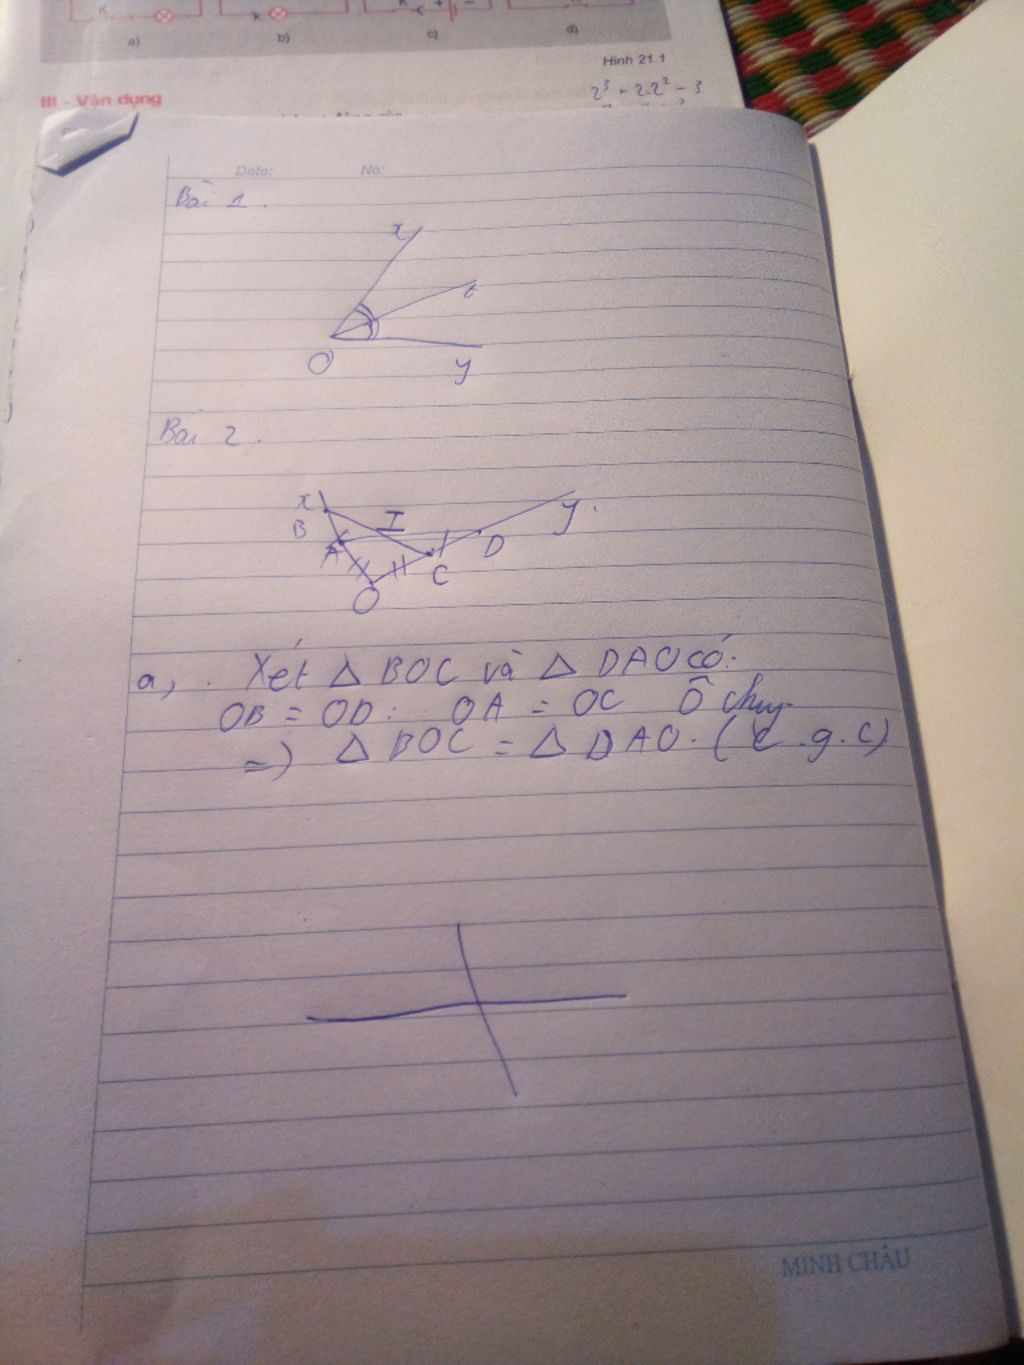 K
K
K
+
−
a)
b)
c)
d)
Hình 21.1
III - Vận dụng
2³ + 2.2² - 3
Date:
No:
Bài 1.
x
t
O
y
Bài 2.
x
B
I
y.
A
D
C
O
a, . Xét Δ BOC và Δ DAO có:
OB = OD: OA = OC Ô chung
=) Δ BOC = Δ DAO. (c.g.c)
MINH CHÂU